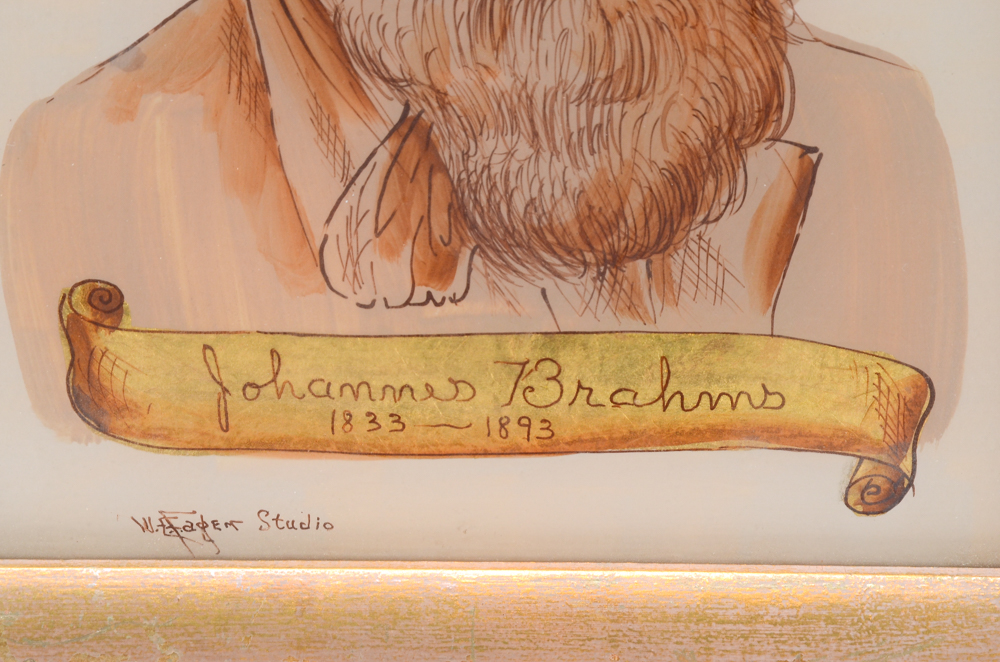 Johannes Brahms
1833 — 1893
Studio